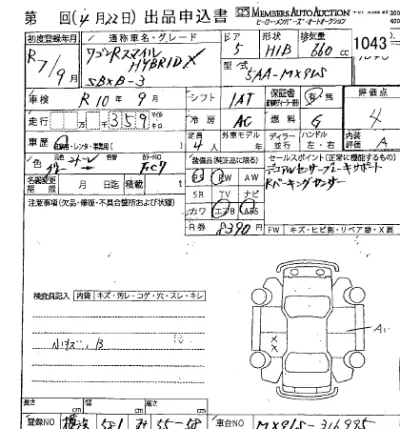 第 回(4月22日) 出品申込書 MEMBERS AUTO AUCTION
ヒーローメンバーズ・オートオークション
初度登録年月 通称車名・グレード ドア 形状 排気量
R7/9月 ワゴンRスマイル HYBRID X 5 HIB 660cc 1043
5BXB-3 型式 5AA-MX91S
車検 R10年9月 シフト IAT 保証書 有・無 評価点
走行 万 千 359 冷房 AC 燃料 G 4
車歴 定員 4人 外車モデル 年 ディーラー 並行 ハンドル 左・右 内装評価 A
色 グレー カラーNO
装備品(純正品に限る) セールスポイント(正常に機能するもの)
名義変更期限 月 日迄 積載 t PS PW AW デュアルセンサーブレーキサポート
SR TV ナビ Rパーキングセンサー
注意事項(欠品・修復・不具合箇所および状態) カワ エアB ABS
R券 8390円 FW キズ・ヒビ割・リペア跡・X
検査員記入 内装 キズ・汚レ・コゲ・穴・スレ・キレ
小キズ、B
A1
長さ cm 幅 cm 高さ cm
登録NO 車台NO MX91S-316995